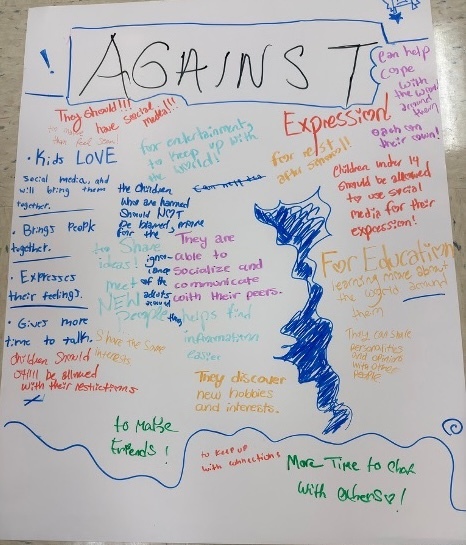 AGAINST
They should!!!
have social
media!!!
for entertainment,
to keep up with
the world!
Expression!
for rest
after school!
Can help
cope
with
the world
around
them
each on
their own!
• Kids LOVE
social media, and
will bring them
together.
• Brings People
together.
• Expresses
their feelings.
• Gives more
time to talk.
Children Should
still be allowed
with their restrictions
the children
who are harmed
Should NOT
be blamed, more
for the
ignor-
ance
of the
adults
around
them
to Share
ideas!
meet
NEW
people
They are
able to
socialize and
communicate
with their peers.
helps find
information
easier
Share the Same
interests
They discover
new hobbies
and interests.
Children under 14
Should be allowed
to use social
media for their
expression!
For Education
learning more about
the world around
them
They can share
personalities
and opinions
with other
People
to Make
Friends!
to keep up
with connections
More Time to Chat
with others!